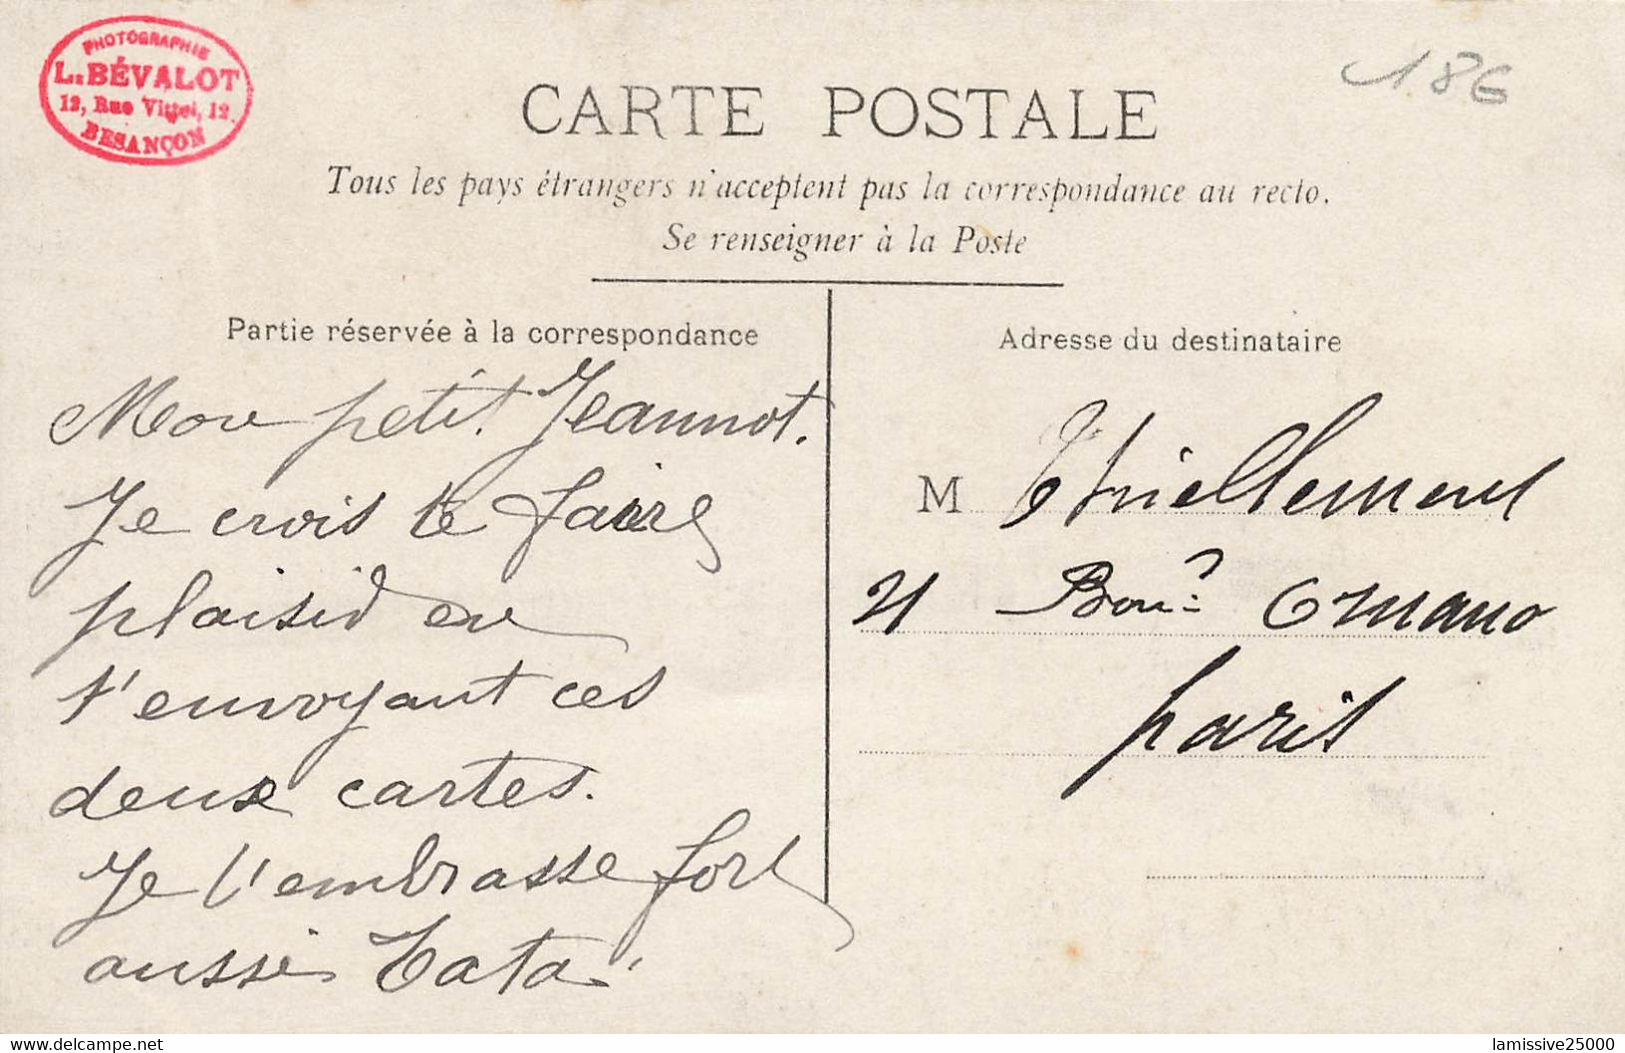 PHOTOGRAPHIE
L. BÉVALOT
12, Rue Vittel, 12.
BESANÇON
186
CARTE POSTALE
Tous les pays étrangers n'acceptent pas la correspondance au recto.
Se renseigner à la Poste
Partie réservée à la correspondance
Mon petit Jeannot.
Je crois te faire
plaisir en
t'envoyant ces
deux cartes.
Je t'embrasse fort
aussi Tata
Adresse du destinataire
M Thiellement
21 Bou. Ornano
paris
www.delcampe.net
lamissive25000